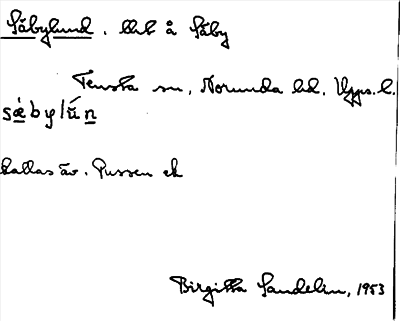 Säbylund. litt å Säby
Tensta sn, Norunda hd, Upps. l.
sæ̀bylún
kallas äv. Pussen ek
Birgitta Sandelin, 1953